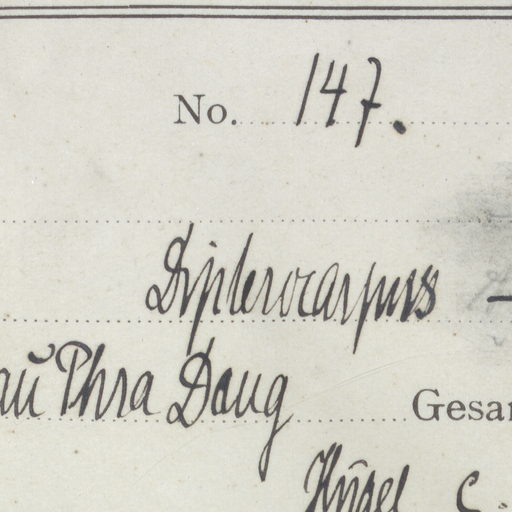 No. 147.
Dipterocarpus —
aŭ Phra Dang Gesam
Hügel c.